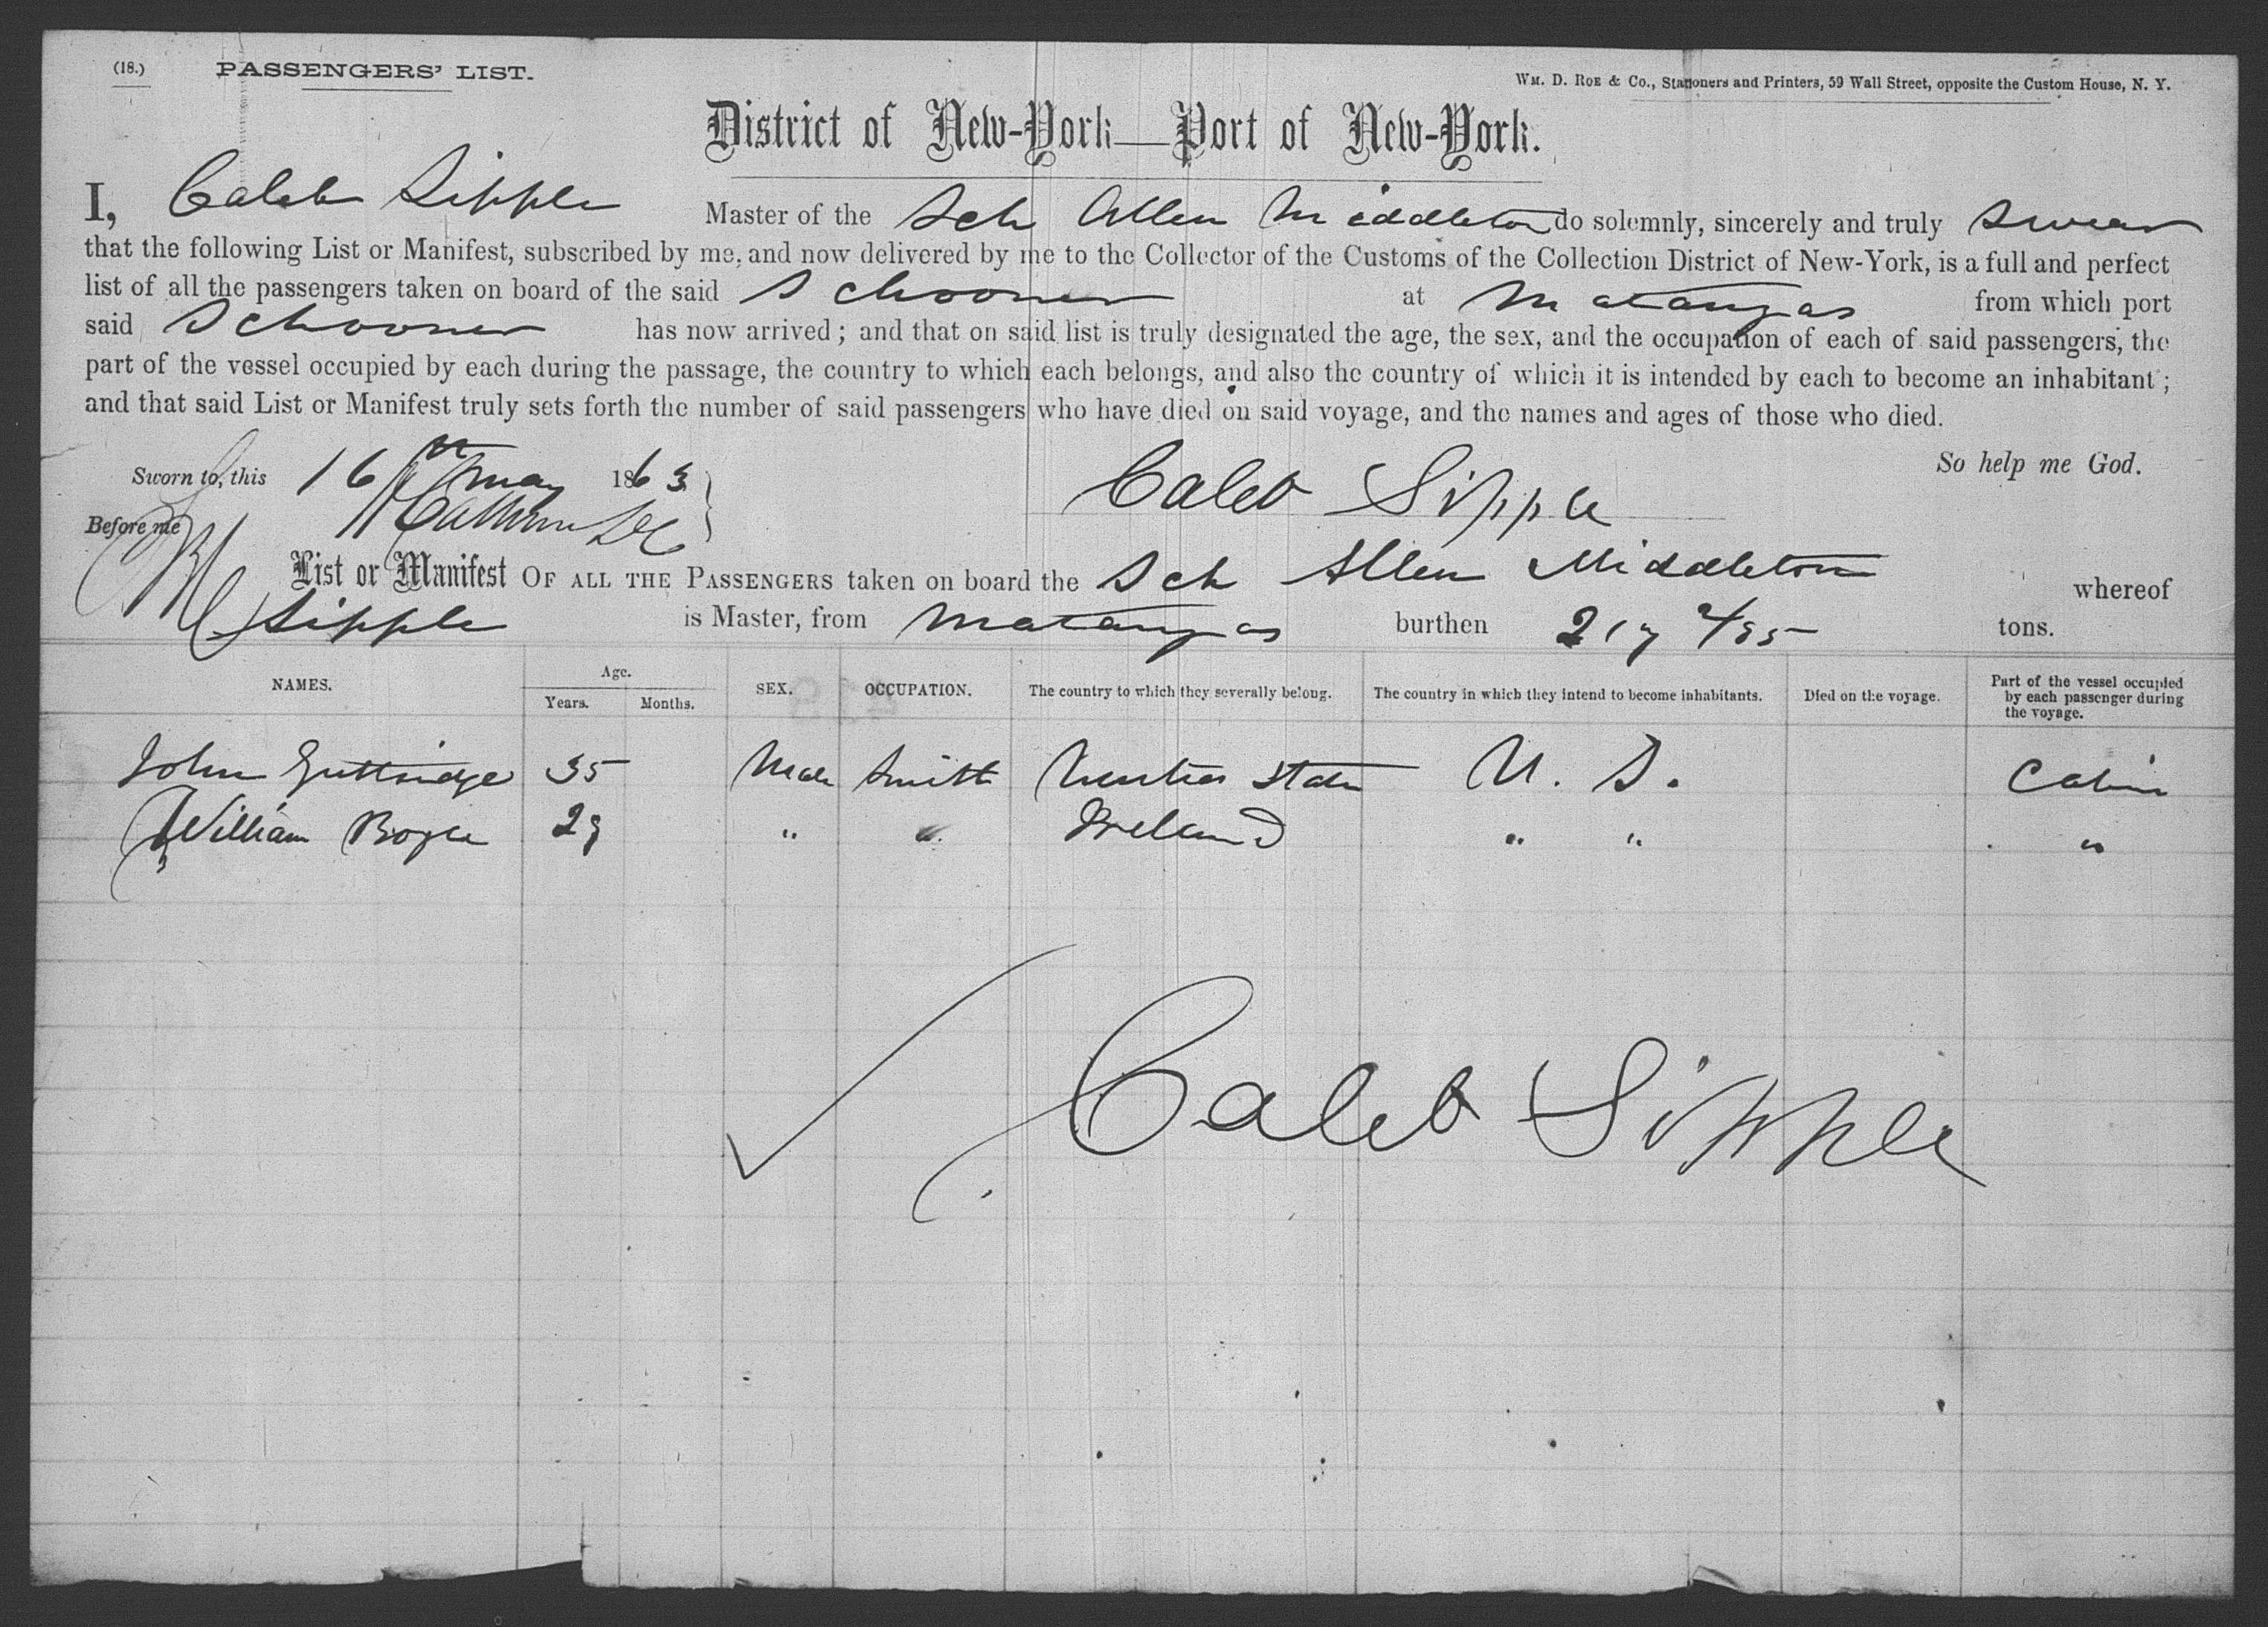 (18.) PASSENGERS' LIST.
WM. D. ROE & Co., Stationers and Printers, 59 Wall Street, opposite the Custom House, N. Y.
District of New-York—Port of New-York.
I, Caleb Sipple Master of the Sch Allen Middleton do solemnly, sincerely and truly swear
that the following List or Manifest, subscribed by me, and now delivered by me to the Collector of the Customs of the Collection District of New-York, is a full and perfect
list of all the passengers taken on board of the said Schooner at Matanzas from which port
said Schooner has now arrived; and that on said list is truly designated the age, the sex, and the occupation of each of said passengers, the
part of the vessel occupied by each during the passage, the country to which each belongs, and also the country of which it is intended by each to become an inhabitant;
and that said List or Manifest truly sets forth the number of said passengers who have died on said voyage, and the names and ages of those who died.
So help me God.
Sworn to, this 16th May 1863
Caleb Sipple
Before me
List or Manifest OF ALL THE PASSENGERS taken on board the Sch Allen Middleton whereof
Sipple is Master, from Matanzas burthen tons.
NAMES. Age. Years. Months. SEX. OCCUPATION. The country to which they severally belong. The country in which they intend to become inhabitants. Died on the voyage. Part of the vessel occupied by each passenger during the voyage.
John Guttridge 35 Male Smith United States U. S. Cabin
William Boyle 29 " " Ireland " " "
Caleb Sipple